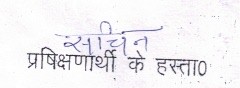 सचिन
प्रषिक्षणार्थी के हस्ता0